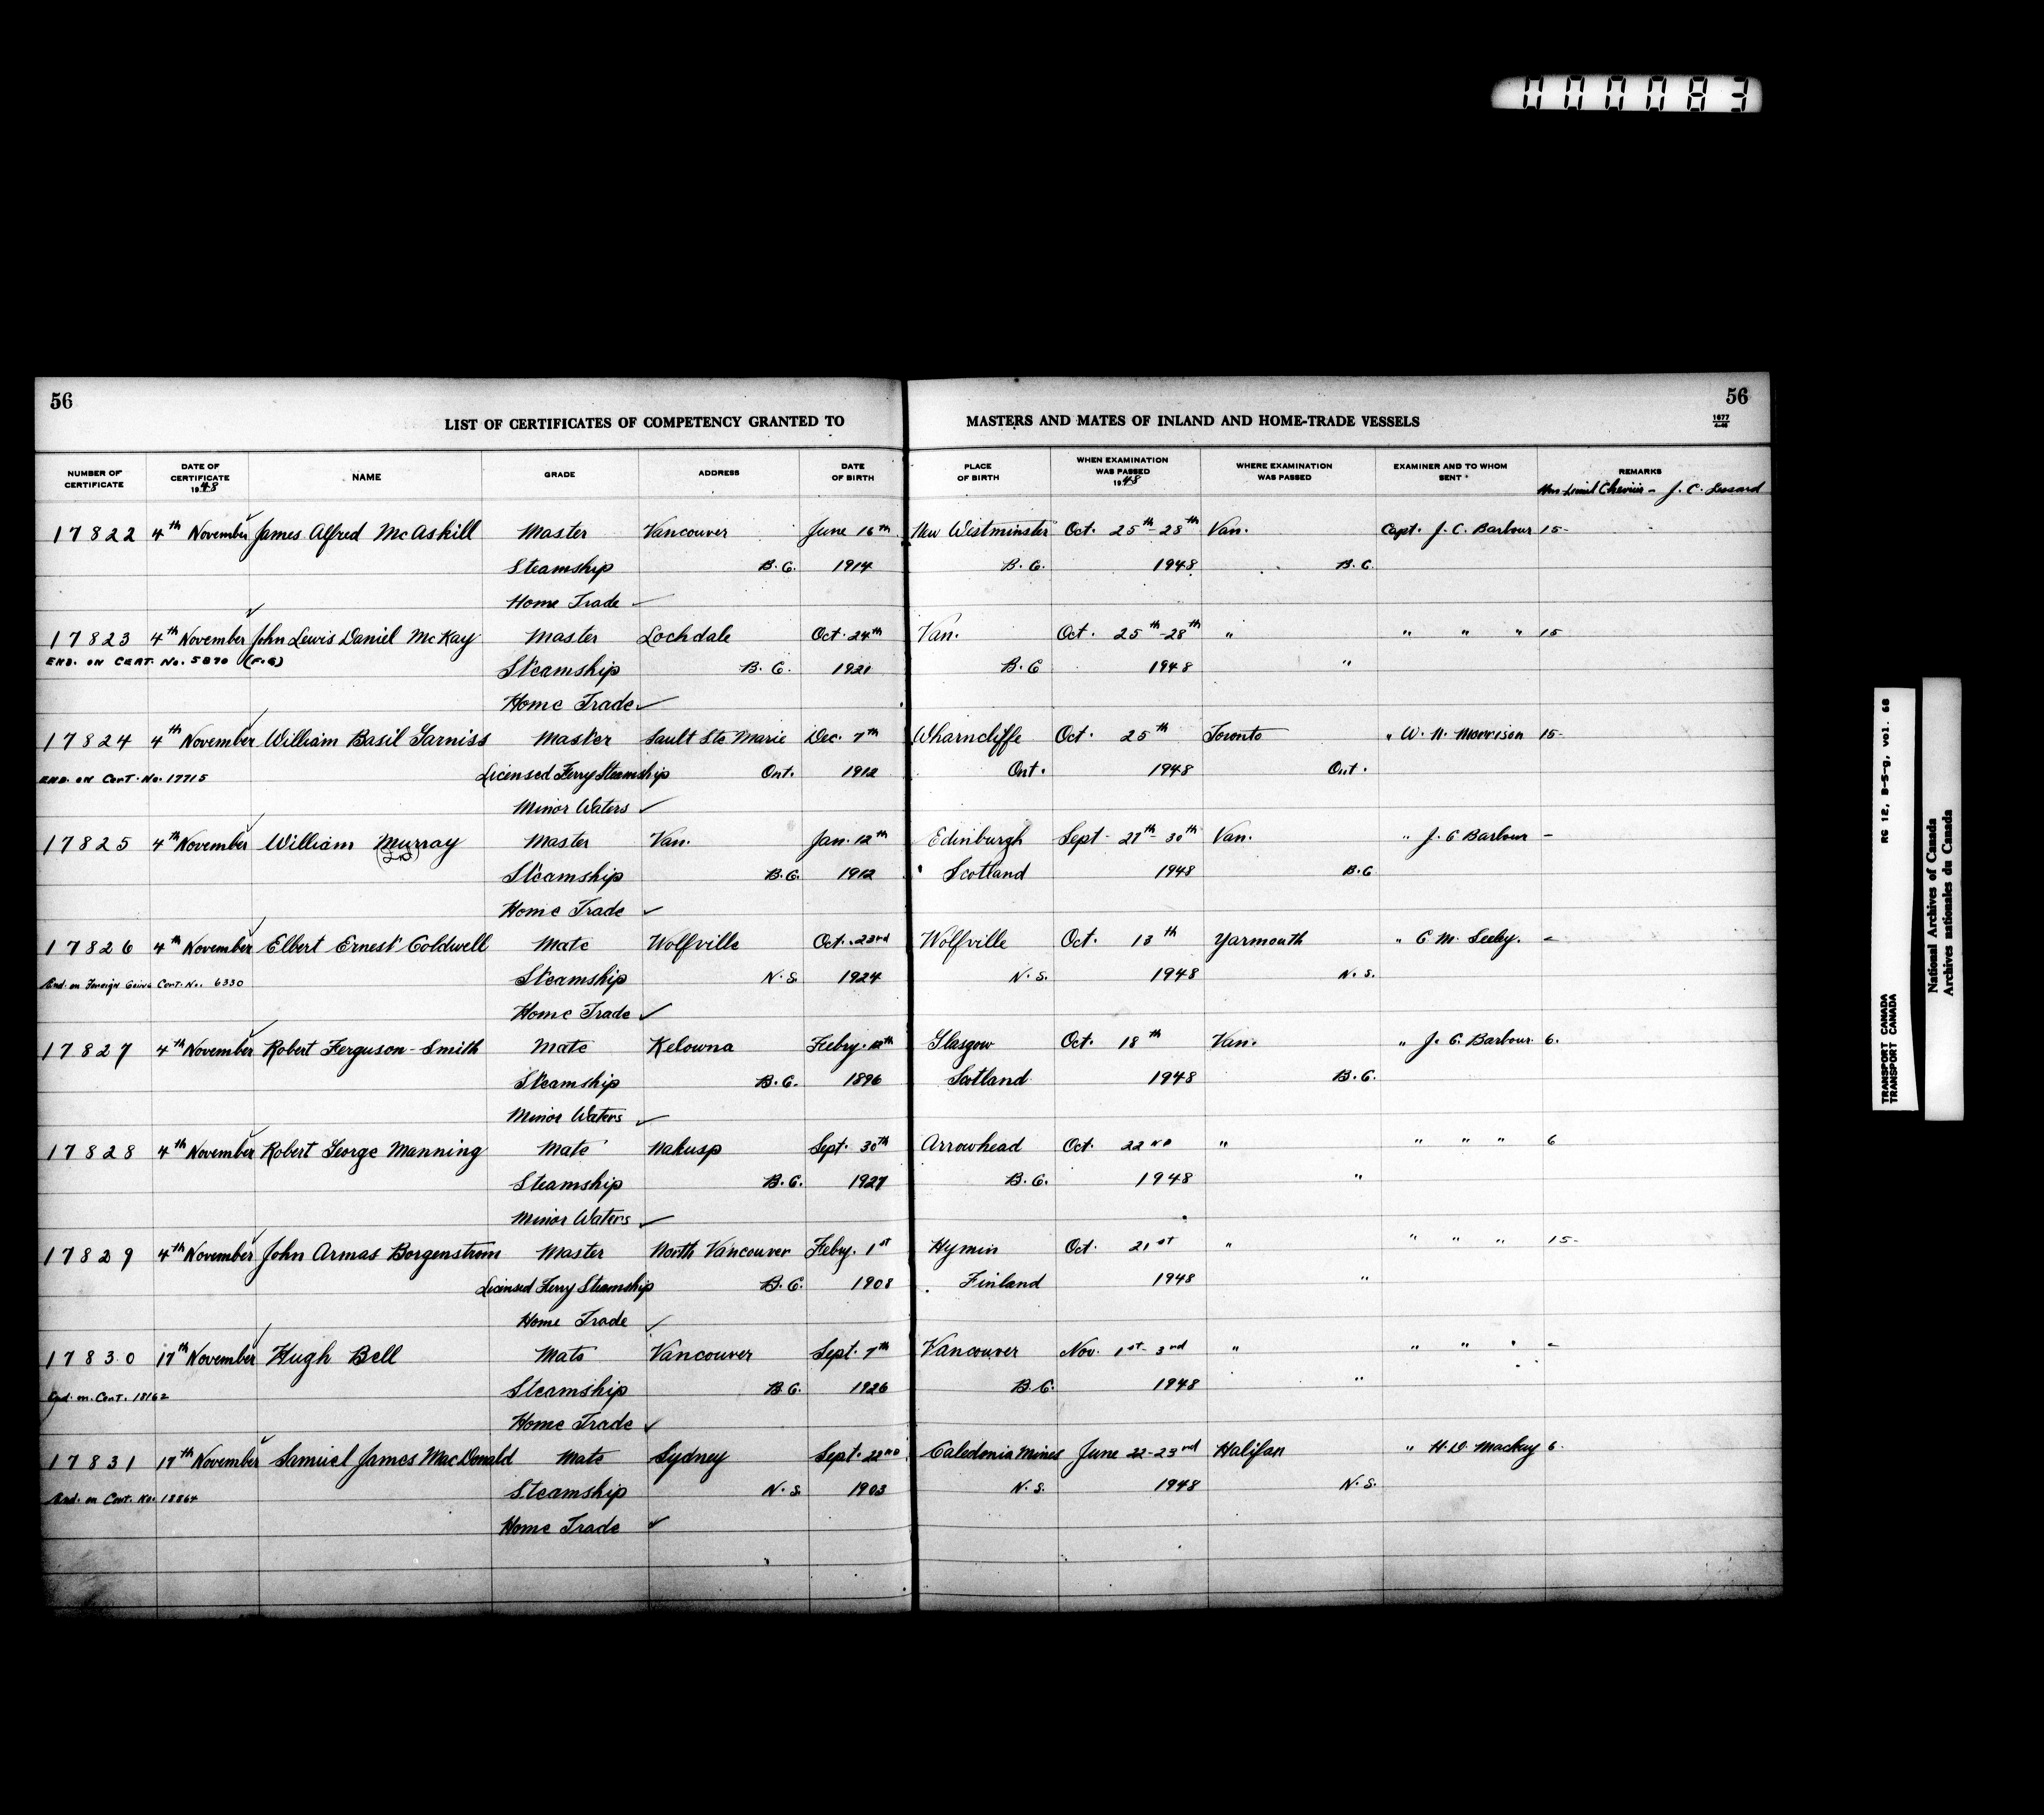 000083
56 56
LIST OF CERTIFICATES OF COMPETENCY GRANTED TO MASTERS AND MATES OF INLAND AND HOME-TRADE VESSELS 1677
NUMBER OF CERTIFICATE DATE OF CERTIFICATE 1948 NAME GRADE ADDRESS DATE OF BIRTH PLACE OF BIRTH WHEN EXAMINATION WAS PASSED 1948 WHERE EXAMINATION WAS PASSED EXAMINER AND TO WHOM SENT REMARKS
J. C. Lessard
17822 4th November James Alfred McAskill Master Vancouver June 16th New Westminster Oct. 25th-28th Van. Capt. J. C. Barbour 15-
Steamship B.C. 1914 B.C. 1948 B.C.
Home Trade ✓
17823 4th November John Lewis Daniel McKay Master Lochdale Oct. 24th Van. Oct. 25th-28th " " " " 15
END. ON CERT. No. 5890 (F.G) Steamship B.C. 1921 B.C 1948 "
Home Trade ✓
17824 4th November William Basil Garniss Master Sault Ste Marie Dec. 7th Wharncliffe Oct. 25th Toronto " W. N. Morrison 15-
END. ON CERT. No. 17715 Licensed Ferry Steamship Ont. 1912 Ont. 1948 Ont.
Minor Waters ✓
17825 4th November William Murray Master Van. Jan. 12th Edinburgh Sept- 27th-30th Van. " J. C Barbour -
Steamship B.C. 1912 Scotland 1948 B.C
Home Trade ✓
17826 4th November Elbert Ernest Coldwell Mate Wolfville Oct. 23rd Wolfville Oct. 13th Yarmouth " C. M. Seeley. -
End. on Foreign Going Cert. No. 6330 Steamship N.S. 1924 N.S. 1948 N.S.
Home Trade ✓
17827 4th November Robert Ferguson-Smith Mate Kelowna Feby. Glasgow Oct. 18th Van. " J. C. Barbour. 6.
Steamship B.C. 1896 Scotland 1948 B.C.
Minor Waters ✓
17828 4th November Robert George Manning Mate Nakusp Sept. 30th Arrowhead Oct. 22ND " " " " 6
Steamship B.C. 1927 B.C. 1948 "
Minor Waters ✓
17829 4th November John Armas Borgenstrom Master North Vancouver Feby. 1st Hymin Oct. 21st " " " " 15-
Licensed Ferry Steamship B.C. 1908 Finland 1948 "
Home Trade ✓
17830 17th November Hugh Bell Mate Vancouver Sept. 7th Vancouver Nov. 1st-3rd " " " " -
End. on. Cert. 18162 Steamship B.C. 1926 B.C. 1948 "
Home Trade ✓
17831 17th November Samuel James MacDonald Mate Sydney Sept. 22ND Caledonia Mines June 22-23rd Halifax " H. D. Mackay 6.
End. on Cert. No. 18864 Steamship N.S. 1903 N.S. 1948 N.S.
Home Trade ✓
RG 12, B-5-g, vol. 68
TRANSPORT CANADA
TRANSPORT CANADA
National Archives of Canada
Archives nationales du Canada